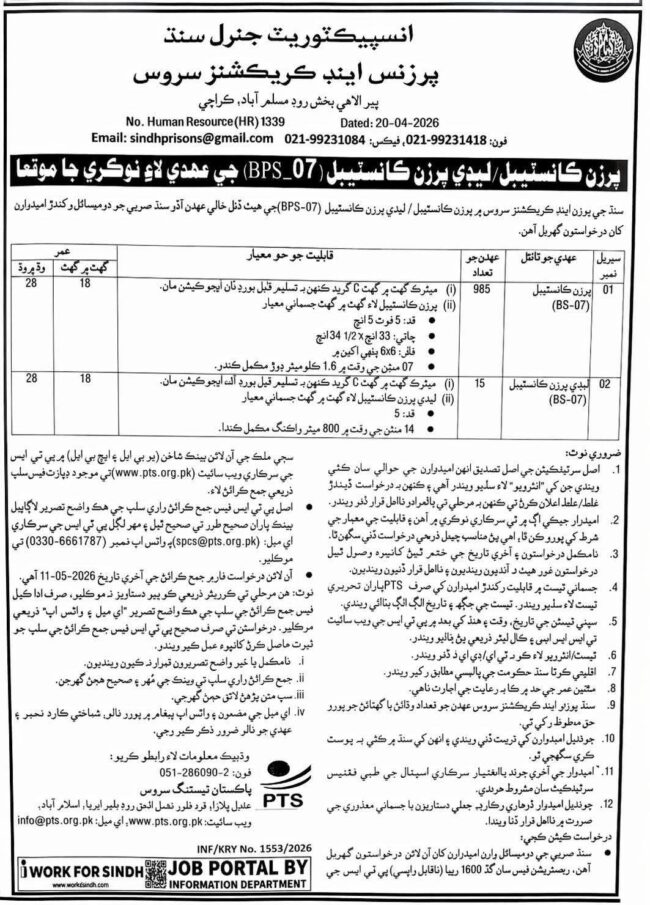 انسپيڪٽوريٽ جنرل سنڌ
پرزنس اينڊ ڪريڪشنز سروس
پير الاهي بخش روڊ مسلم آباد، ڪراچي
No. Human Resource (HR) 1339 Dated: 20-04-2026
فون: 021-99231418، فيڪس: 021-99231084 Email: sindhprisons@gmail.com
پرزن ڪانسٽيبل/ليڊي پرزن ڪانسٽيبل (BPS_07) جي عهدي لاءِ نوڪري جا موقعا
سنڌ جي پرزن اينڊ ڪريڪشنز سروس ۾ پرزن ڪانسٽيبل/ ليڊي پرزن ڪانسٽيبل (BPS-07) جي هيٺ ڏنل خالي عهدن آڏو سنڌ صوبي جو ڊوميسائل رکندڙ اميدوارن
کان درخواستون گهريل آهن.
سيريل نمبر
عهدي جو ٽائٽل
عهدن جو تعداد
قابليت جو حو معيار
عمر
گهٽ ۾ گهٽ
وڌ ۾ وڌ
01
پرزن ڪانسٽيبل (BS-07)
985
(i) ميٽرڪ گهٽ ۾ گهٽ C گريڊ ڪنهن به تسليم ٿيل بورڊ آف ايجوڪيشن مان.
(ii) پرزن ڪانسٽيبل لاءِ گهٽ ۾ گهٽ جسماني معيار
• قد: 5 فوٽ 5 انچ
• ڇاتي: 33 انچ x 34 1/2 انچ
• 6x6 ٻنهي اکين ۾
• 07 منٽن جي وقت ۾ 1.6 ڪلوميٽر ڊوڙ مڪمل ڪندر.
18
28
02
ليڊي پرزن ڪانسٽيبل (BS-07)
15
(i) ميٽرڪ گهٽ ۾ گهٽ C گريڊ ڪنهن به تسليم ٿيل بورڊ آف ايجوڪيشن مان.
(ii) ليڊي پرزن ڪانسٽيبل لاءِ گهٽ ۾ گهٽ جسماني معيار
• قد: 5
• 14 منٽن جي وقت ۾ 800 ميٽر واڪنگ مڪمل ڪندا.
18
28
ضروري نوٽ:
1. اصل سرٽيفڪيٽن جي اصل تصديق انهن اميدوارن جي حوالي سان ڪئي
ويندي جن کي "انٽرويو" لاءِ سڏيو ويندر آهي ۽ ڪنهن به درخواست ڏيندڙ
2. اميدوار جيڪي اڳ ۾ ئي سرڪاري نوڪري ۾ آهن ۽ قابليت جي معيار جي
3. نامڪمل درخواستون ۽ آخري تاريخ جي ختم ٿيڻ کانپوءِ وصول ٿيل
4. جسماني ٽيسٽ ۾ قابليت رکندڙ اميدوارن کي صرف PTS پاران تحريري
ٽيسٽ لاءِ سڏيو ويندر. ٽيسٽ جي جڳهه ۽ تاريخ الڳ الڳ ٻڌائي ويندي.
5. سڀني ٽيسٽن جي تاريخ، وقت ۽ هنڌ کي بعد ۾ پي ٽي ايس جي ويب سائيٽ
تي ايس ايم ايس ۽ ڪال ليٽر ذريعي
6. ٽيسٽ/انٽرويو لاءِ ڪو به ٽي اي/ڊي اي نه ڏنو ويندر.
7. اقليتي ڪوٽا سنڌ حڪومت جي پاليسي مطابق رکيو ويندر.
8. مٿئين عمر جي حد ۾ ڪا به رعايت جي اجازت ناهي.
9. سنڌ پرزنز اينڊ ڪريڪشنز سروس عهدن جو تعداد وڌائڻ يا گهٽائڻ جو پورو
حق محفوظ رکي ٿي.
10. چونڊيل اميدوارن کي تربيت ڏني ويندي ۽ انهن کي سنڌ ۾ ڪٿي به پوسٽ
ڪري سگهجي ٿو.
11. اميدوار جي آخري چونڊ بااختيار سرڪاري اسپتال جي طبي فٽنيس
سرٽيفڪيٽ سان مشروط هوندي.
12. چونڊيل اميدوار ڏوهاري رڪارڊ، جعلي دستاويزن يا جسماني معذوري جي
صورت ۾ نااهل قرار ڏنا ويندا.
درخواست ڪيئن ڪجي:
• سنڌ صوبي جي ڊوميسائل وارن اميدوارن کان آن لائن درخواستون گهربل
آهن، رجسٽريشن فيس سان گڏ 1600 رپيا (ناقابل واپسي) پي ٽي ايس جي
سڄي ملڪ جي آن لائن بينڪ شاخن (يو بي ايل ۽ ايڇ بي ايل) ۾ پي ٽي ايس
جي سرڪاري ويب سائيٽ (www.pts.org.pk) تي موجود ڊپازٽ فيس سلپ
ذريعي جمع ڪرائڻ لاءِ.
• اصل پي ٽي ايس فيس جمع ڪرائڻ واري سلپ جي هڪ واضح تصوير لاڳاپيل
بينڪ پاران صحيح طرر تي صحيح ٿيل ۽ مهر لڳل پي ٽي ايس جي سرڪاري
اي ميل: (spcs@pts.org.pk)يا واٽس اپ نمبر (0330-6661787) تي
موڪليو.
• آن لائن درخواست فارم جمع ڪرائڻ جي آخري تاريخ 11-05-2026 آهي.
نوٽ: هن مرحلي تي ڪوريئر ذريعي ڪو پيپر دستاويز نه موڪليو، صرف ادا ڪيل
فيس جمع ڪرائڻ جي سلپ جي هڪ واضح تصوير "اي ميل ۽ واٽس اپ" ذريعي
موڪليو. درخواستن تي صرف صحيح پي ٽي ايس فيس جمع ڪرائڻ جي سلپ جو
ثبوت حاصل ڪرڻ کانپوءِ عمل ڪيو ويندر.
i. نامڪمل يا غير واضح تصويرون قبول نه ڪيون وينديون.
ii. جمع ڪرائڻ واري سلپ تي بينڪ جي مُهر ۽ صحيح هجڻ گهرجن.
iii. سڀ متن پڙهڻ لائق هجڻ گهرجي.
iv. اي ميل جي مضمون ۽ واٽس اپ پيغام ۾ پورو نالو، شناختي ڪارڊ نمبر ۽
عهدي جو نالو ضرور ذڪر ڪيو وڃي.
وڌيڪ معلومات لاءِ رابطو ڪريو:
فون: 2-051-286090
پاڪستان ٽيسٽنگ سروس
عديل پلازا، ٿرڊ فلور فضل الحق روڊ بليو ايريا، اسلام آباد،
ويب سائيٽ: www.pts.org.pk، اي ميل: info@pts.org.pk
PTS
INF/KRY No. 1553/2026
i WORK FOR SINDH
www.workdsindh.com
JOB PORTAL BY
INFORMATION DEPARTMENT